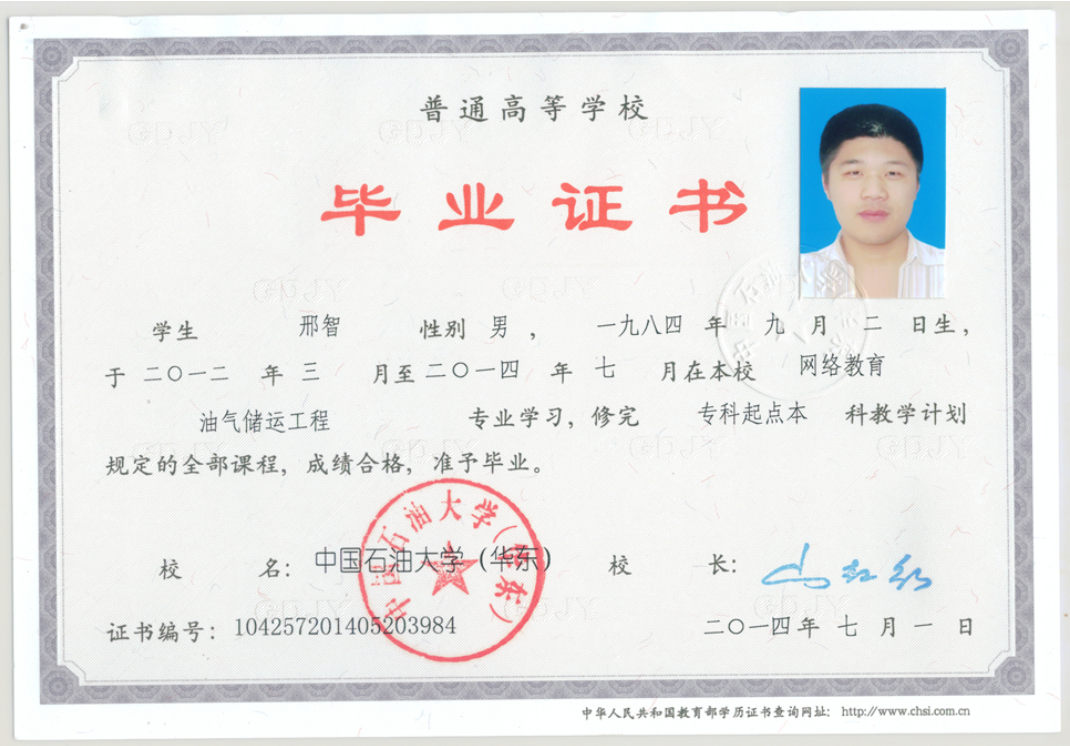 普通高等学校
毕业证书
学生 邢智 性别 男， 一九八四 年 九 月 二 日生，
于 二〇一二 年 三 月至 二〇一四 年 七 月在本校 网络教育
油气储运工程 专业学习，修完 专科起点本 科教学计划
规定的全部课程，成绩合格，准予毕业。
中国石油大学（华东）
校 名： 中国石油大学（华东） 校 长：
证书编号： 104257201405203984 二〇一四年 七 月 一 日
中华人民共和国教育部学历证书查询网址： http://www.chsi.com.cn